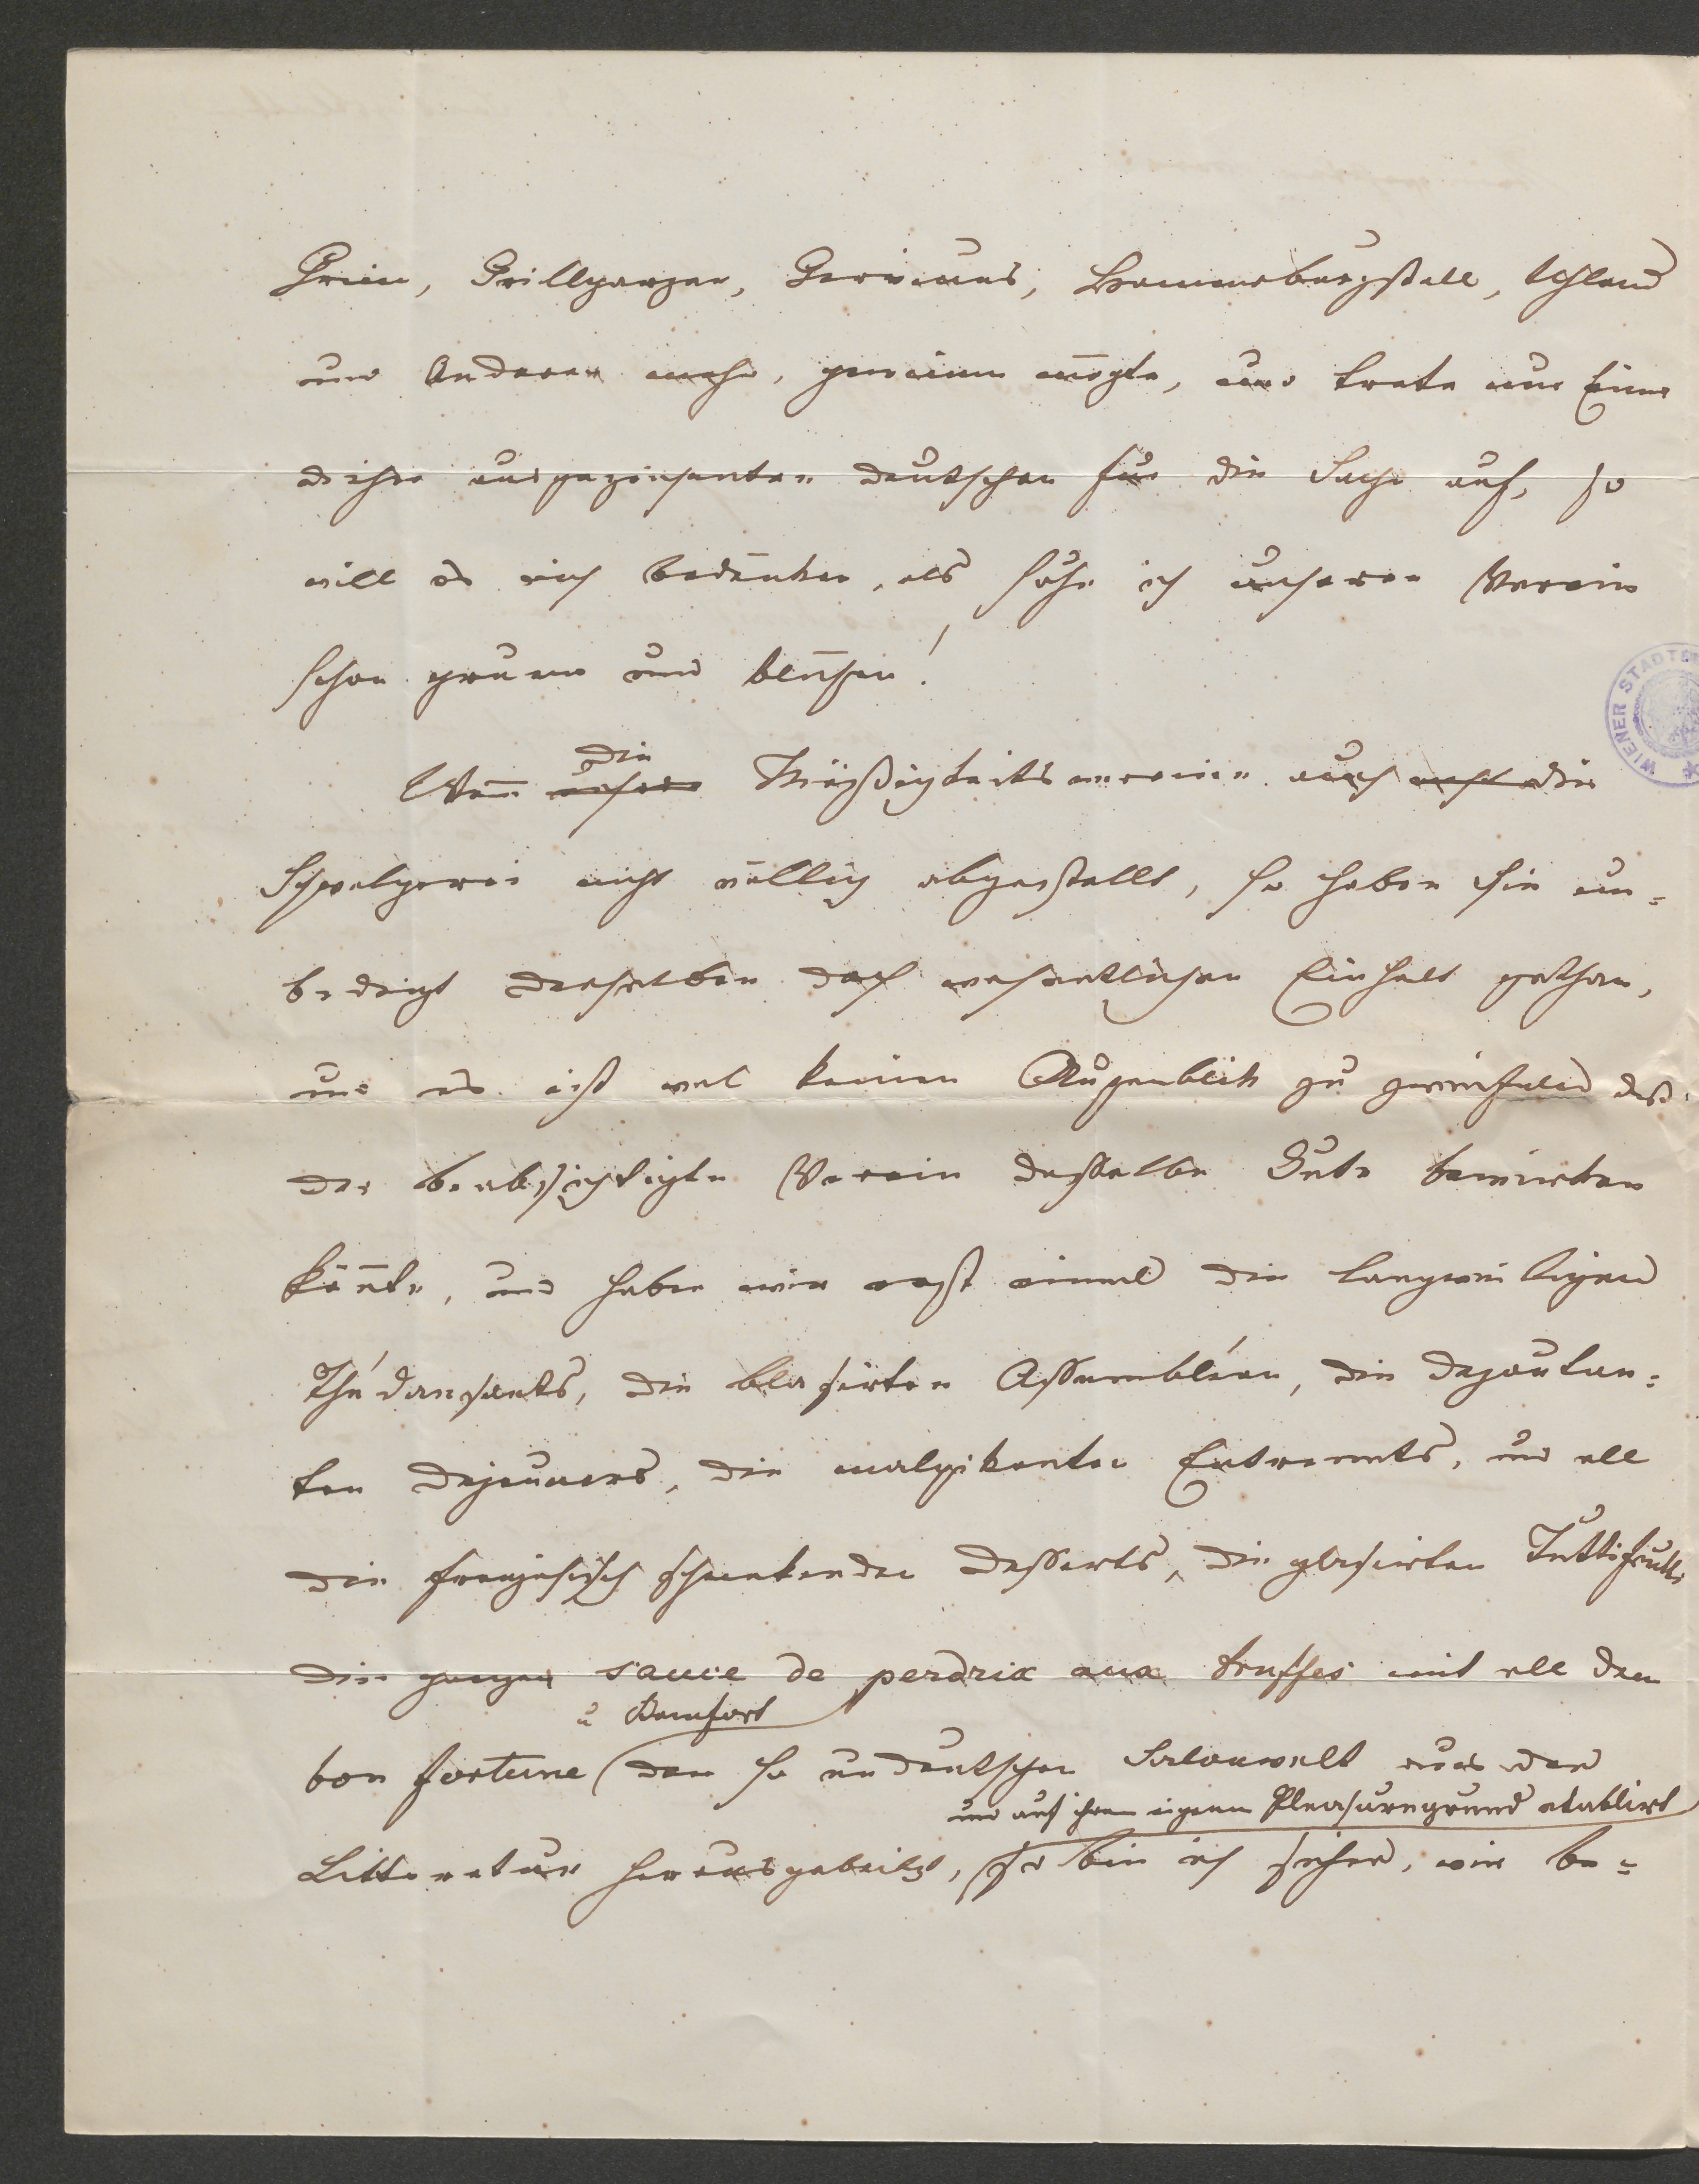 Grün, Grillparzer, Gervinus, Hammerburgstall, Uhland
und Anderen mehr, gewinnen mögte, und trete nur Einer
dieser ausgezeichneten deutschen für die Sache auf, so
will es mich bedünken, als sähe ich unseren Verein
schon grunen und blühen!
die
Wenn unsere Mäßigkeitsvereine auch nicht die
Schwelgerei nicht völlig abgestellt, so haben sie un=
bedingt derselben doch wesentlichen Einhalt gethan,
und es ist wol keinen Augenblick zu zweifeln daß
der beabsichtigte Verein dasselbe Gute bewirken
könnte, und haben wir erst einmal die langweiligen
Thé dansants, die blasirten Assembléen, die degoutan=
ten dejeuners, die malpikanten Entremets, und all
die französisch schmekenden Desserts, die glasirten Tuttifrutti
die ganzen sauce de perdrix aux truffes mit all dem
u Comfort
bon fortune der so undeutschen Salonwelt aus der
und auf ihren eigenen Pleasureground etablirt
Litteratur herausgebeitzt, so bin ich sicher, wir be=
WIENER STADT